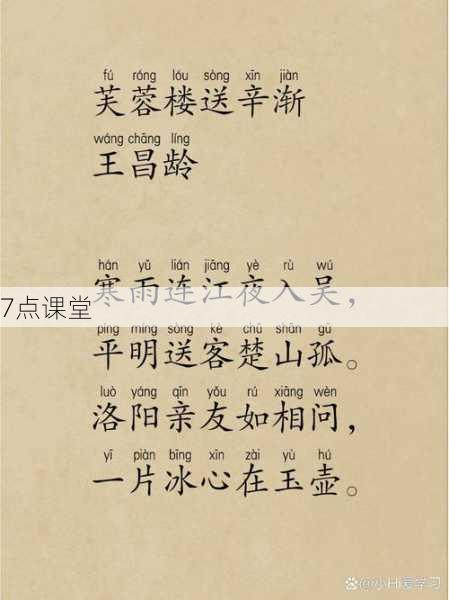 fú róng lóu sòng xīn jiàn
芙蓉楼送辛渐
wáng chāng líng
王昌龄
hán yǔ lián jiāng yè rù wú
寒雨连江夜入吴，
7点课堂
píng míng sòng kè chǔ shān gū
平明送客楚山孤。
luò yáng qīn yǒu rú xiāng wèn
洛阳亲友如相问，
yī piàn bīng xīn zài yù hú
一片冰心在玉壶。
@小Hi爱学习